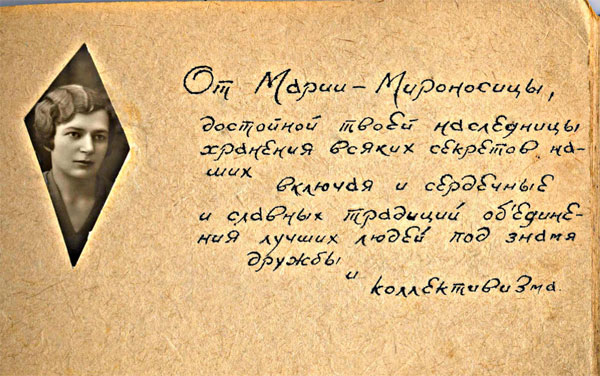 От Марии-Мироносицы,
достойной твоей наследницы
хранения всяких секретов на-
ших
включая и сердечные
и славных традиций об'единe-
ния лучших людей под знамя
дружбы
и
коллективизма.